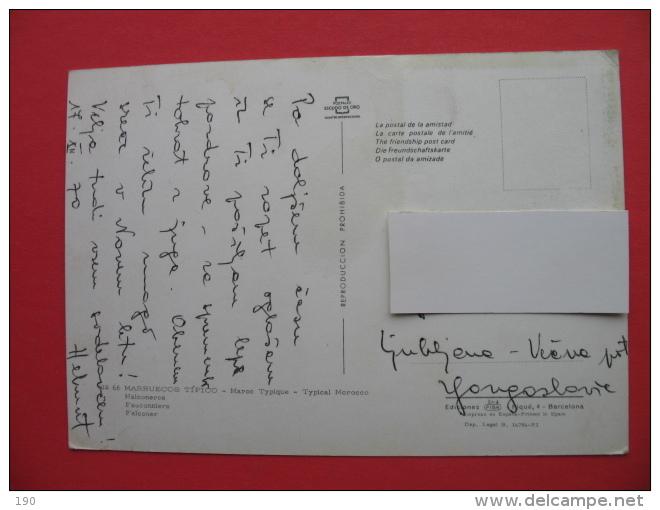 Po daljšem času
se Ti zopet oglašam
in Ti pošiljam lepe
pozdrave - za spremembo
tokrat z juga. Obenem
Ti želim mnogo
sreče v Novem letu!
Velja tudi vsem sodelavcem!
17. XII. 70 Helmut
POSTALES
ESCUDO DE ORO
REPRODUCCION PROHIBIDA
La postal de la amistad
La carte postale de l'amitié
The friendship post card
Die Freundschaftskarte
O postal da amizade
Ljubljana - Večna pot
Yougoslavie
66 MARRUECOS TÍPICO - Maroc Typique - Typical Morocco
Halconeros
Fauconniers
Falconer
Ediciones FISA Palaudarias
4 - Barcelona
Impreso en España-Printed in Spain
Dep. Legal B. 14784-XI
190
delcampe.net